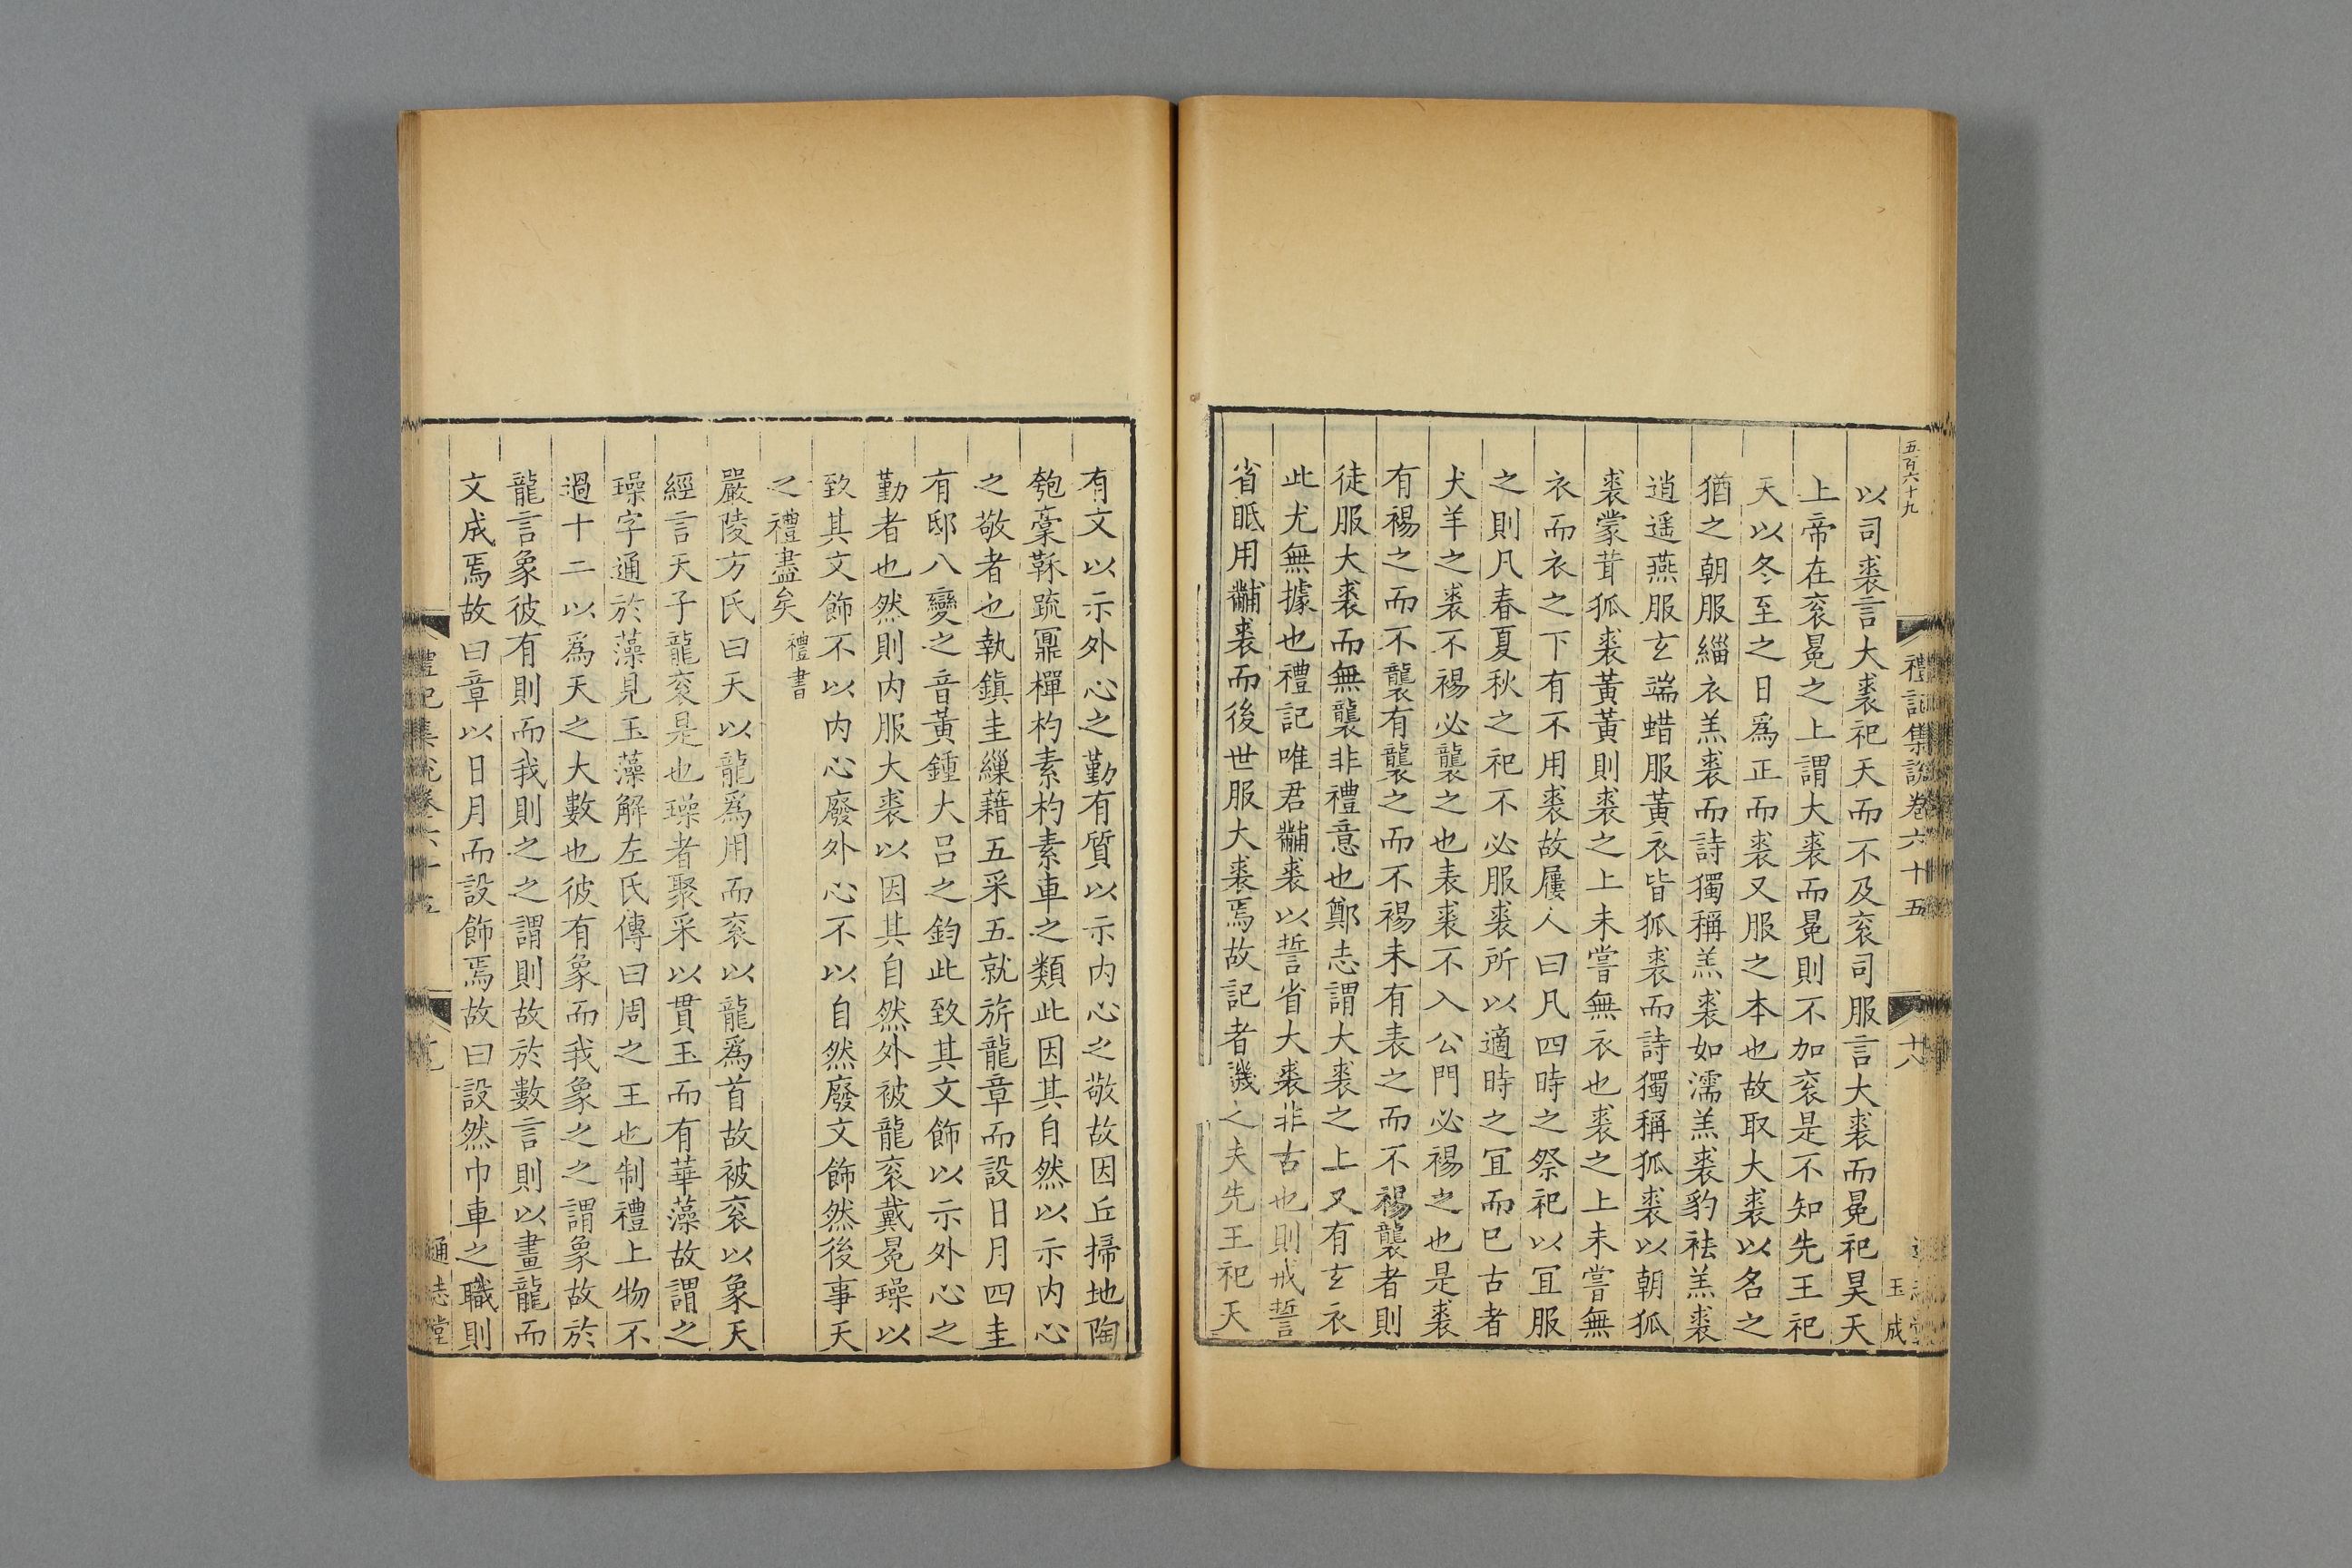 五百六十九
禮記集說卷六十五
十八
玉成
以司裘言大裘祀天而不及衮司服言大裘而冕祀昊天
上帝在衮冕之上謂大裘而冕則不加衮是不知先王祀
天以冬至之日爲正而裘又服之本也故取大裘以名之
猶之朝服緇衣羔裘而詩獨稱羔裘如濡羔裘豹袪羔裘
逍遥燕服玄端蜡服黃衣皆狐裘而詩獨稱狐裘以朝狐
裘蒙茸狐裘黃黃則裘之上未嘗無衣也裘之上未嘗無
衣而衣之下有不用裘故屨人曰凡四時之祭祀以宜服
之則凡春夏秋之祀不必服裘所以適時之宜而巳古者
犬羊之裘不裼必襲之也表裘不入公門必裼之也是裘
有裼之而不襲有襲之而不裼未有表之而不裼襲者則
徒服大裘而無襲非禮意也鄭志謂大裘之上又有玄衣
此尤無據也禮記唯君黼裘以誓省大裘非古也則戒誓
省眡用黼裘而後世服大裘焉故記者譏之夫先王祀天
有文以示外心之勤有質以示内心之敬故因丘掃地陶
匏藁秸疏鼏樿杓素杓素車之類此因其自然以示内心
之敬者也執鎮圭繅藉五采五就旂龍章而設日月四圭
有邸八變之音黃鍾大呂之鈞此致其文飾以示外心之
勤者也然則内服大裘以因其自然外被龍衮戴冕璪以
致其文飾不以内心廢外心不以自然廢文飾然後事天
之禮盡矣 禮書
嚴陵方氏曰天以龍爲用而衮以龍爲首故被衮以象天
經言天子龍衮是也璪者聚采以貫玉而有華藻故謂之
璪字通於藻見玉藻解左氏傳曰周之王也制禮上物不
過十二以爲天之大數也彼有象而我象之之謂象故於
龍言象彼有則而我則之之謂則故於數言則以畫龍而
文成焉故曰章以日月而設飾焉故曰設然巾車之職則
禮記集說卷六十五
通志堂